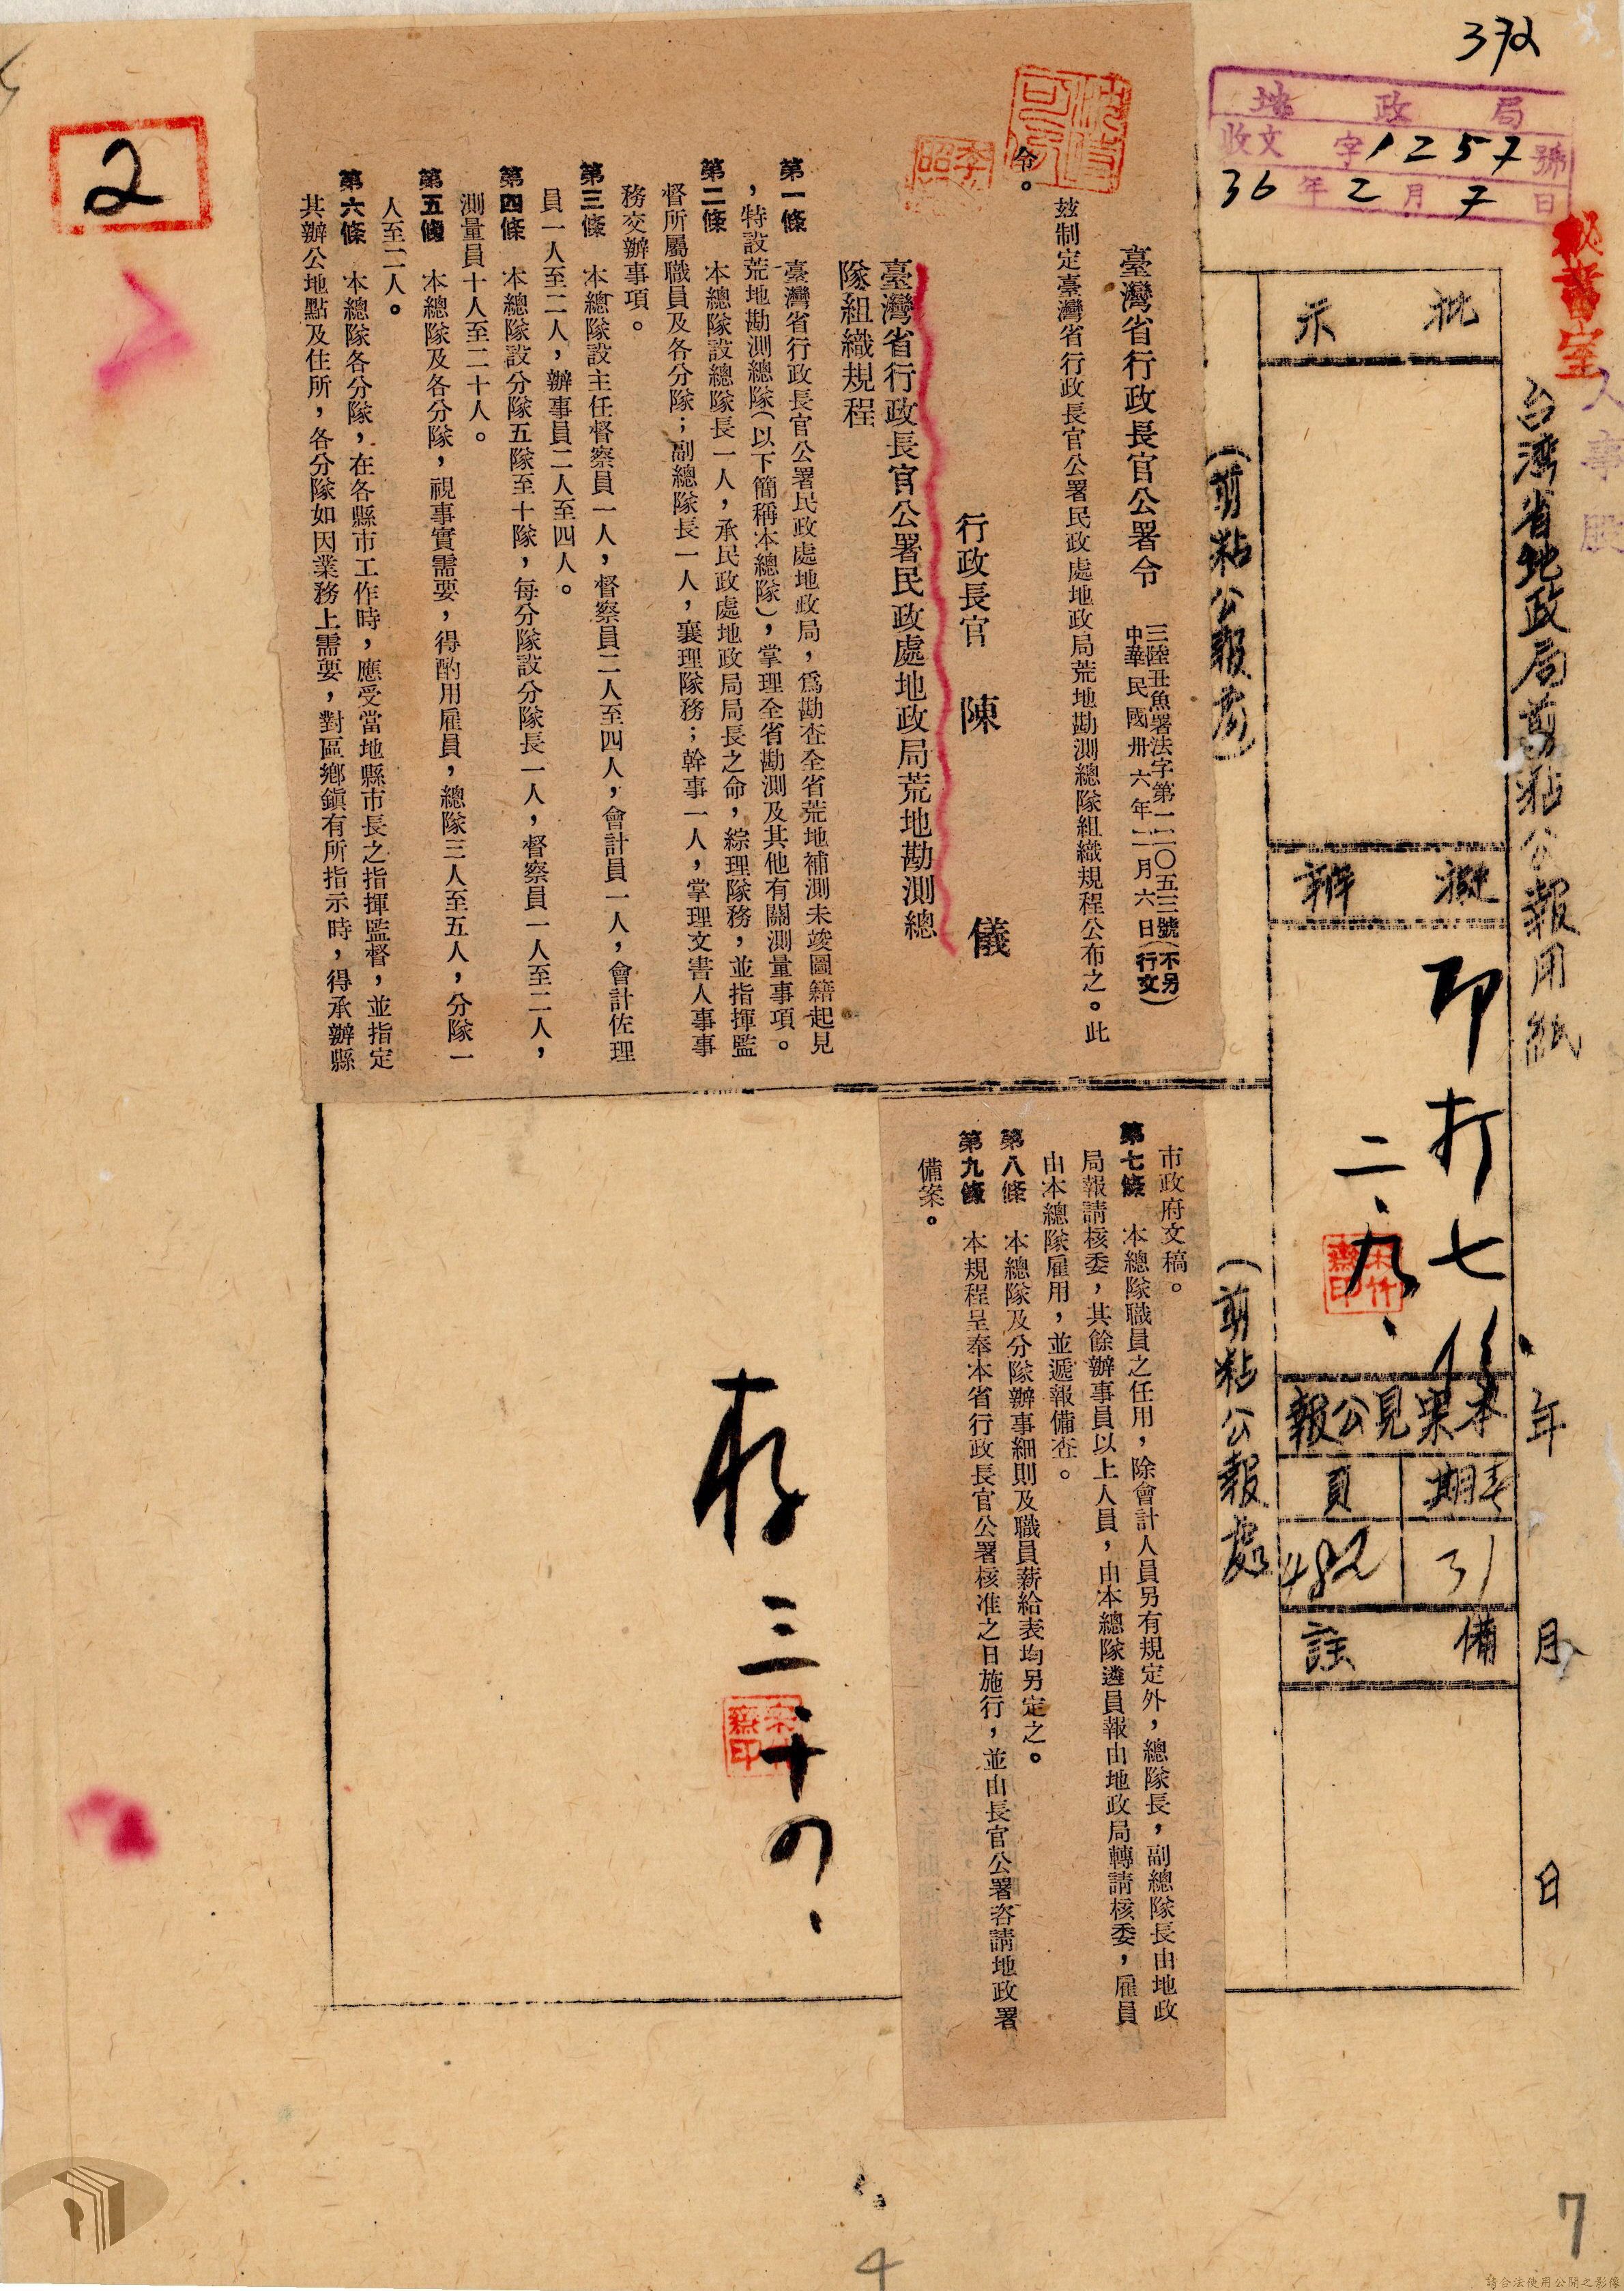 372
地政局
收文 字1257號
36年2月7日
秘書室
人事股
台灣省地政局剪粘公報用紙
年 月 日
批示
擬辦
印打七份、
二、九、
本案見公報
期
31
頁
482
備註
(剪粘公報處)
(剪粘公報處
臺灣省行政長官公署令
三陸丑魚署法字第一二〇五三號
中華民國卅六年二月六日
(不另行文)
玆制定臺灣省行政長官公署民政處地政局荒地勘測總隊組織規程公布之。此
令。
李照
行政長官 陳 儀
臺灣省行政長官公署民政處地政局荒地勘測總
隊組織規程
第一條 臺灣省行政長官公署民政處地政局,爲勘查全省荒地補測未竣圖籍起見
,特設荒地勘測總隊(以下簡稱本總隊),掌理全省勘測及其他有關測量事項。
第二條 本總隊設總隊長一人,承民政處地政局局長之命,綜理隊務,並指揮監
督所屬職員及各分隊;副總隊長一人,襄理隊務;幹事一人,掌理文書人事事
務交辦事項。
第三條 本總隊設主任督察員一人,督察員二人至四人,會計員一人,會計佐理
員一人至二人,辦事員二人至四人。
第四條 本總隊設分隊五隊至十隊,每分隊設分隊長一人,督察員一人至二人,
測量員十人至二十人。
第五條 本總隊及各分隊,視事實需要,得酌用雇員,總隊三人至五人,分隊一
人至二人。
第六條 本總隊各分隊,在各縣市工作時,應受當地縣市長之指揮監督,並指定
其辦公地點及住所,各分隊如因業務上需要,對區鄉鎭有所指示時,得承辦縣
市政府文稿。
第七條 本總隊職員之任用,除會計人員另有規定外,總隊長,副總隊長由地政
局報請核委,其餘辦事員以上人員,由本總隊遴員報由地政局轉請核委,雇員
由本總隊雇用,並遞報備查。
第八條 本總隊及分隊辦事細則及職員薪給表均另定之。
第九條 本規程呈奉本省行政長官公署核准之日施行,並由長官公署咨請地政署
備案。
存 三、十四、
2
4
7
請合法使用公開之影像